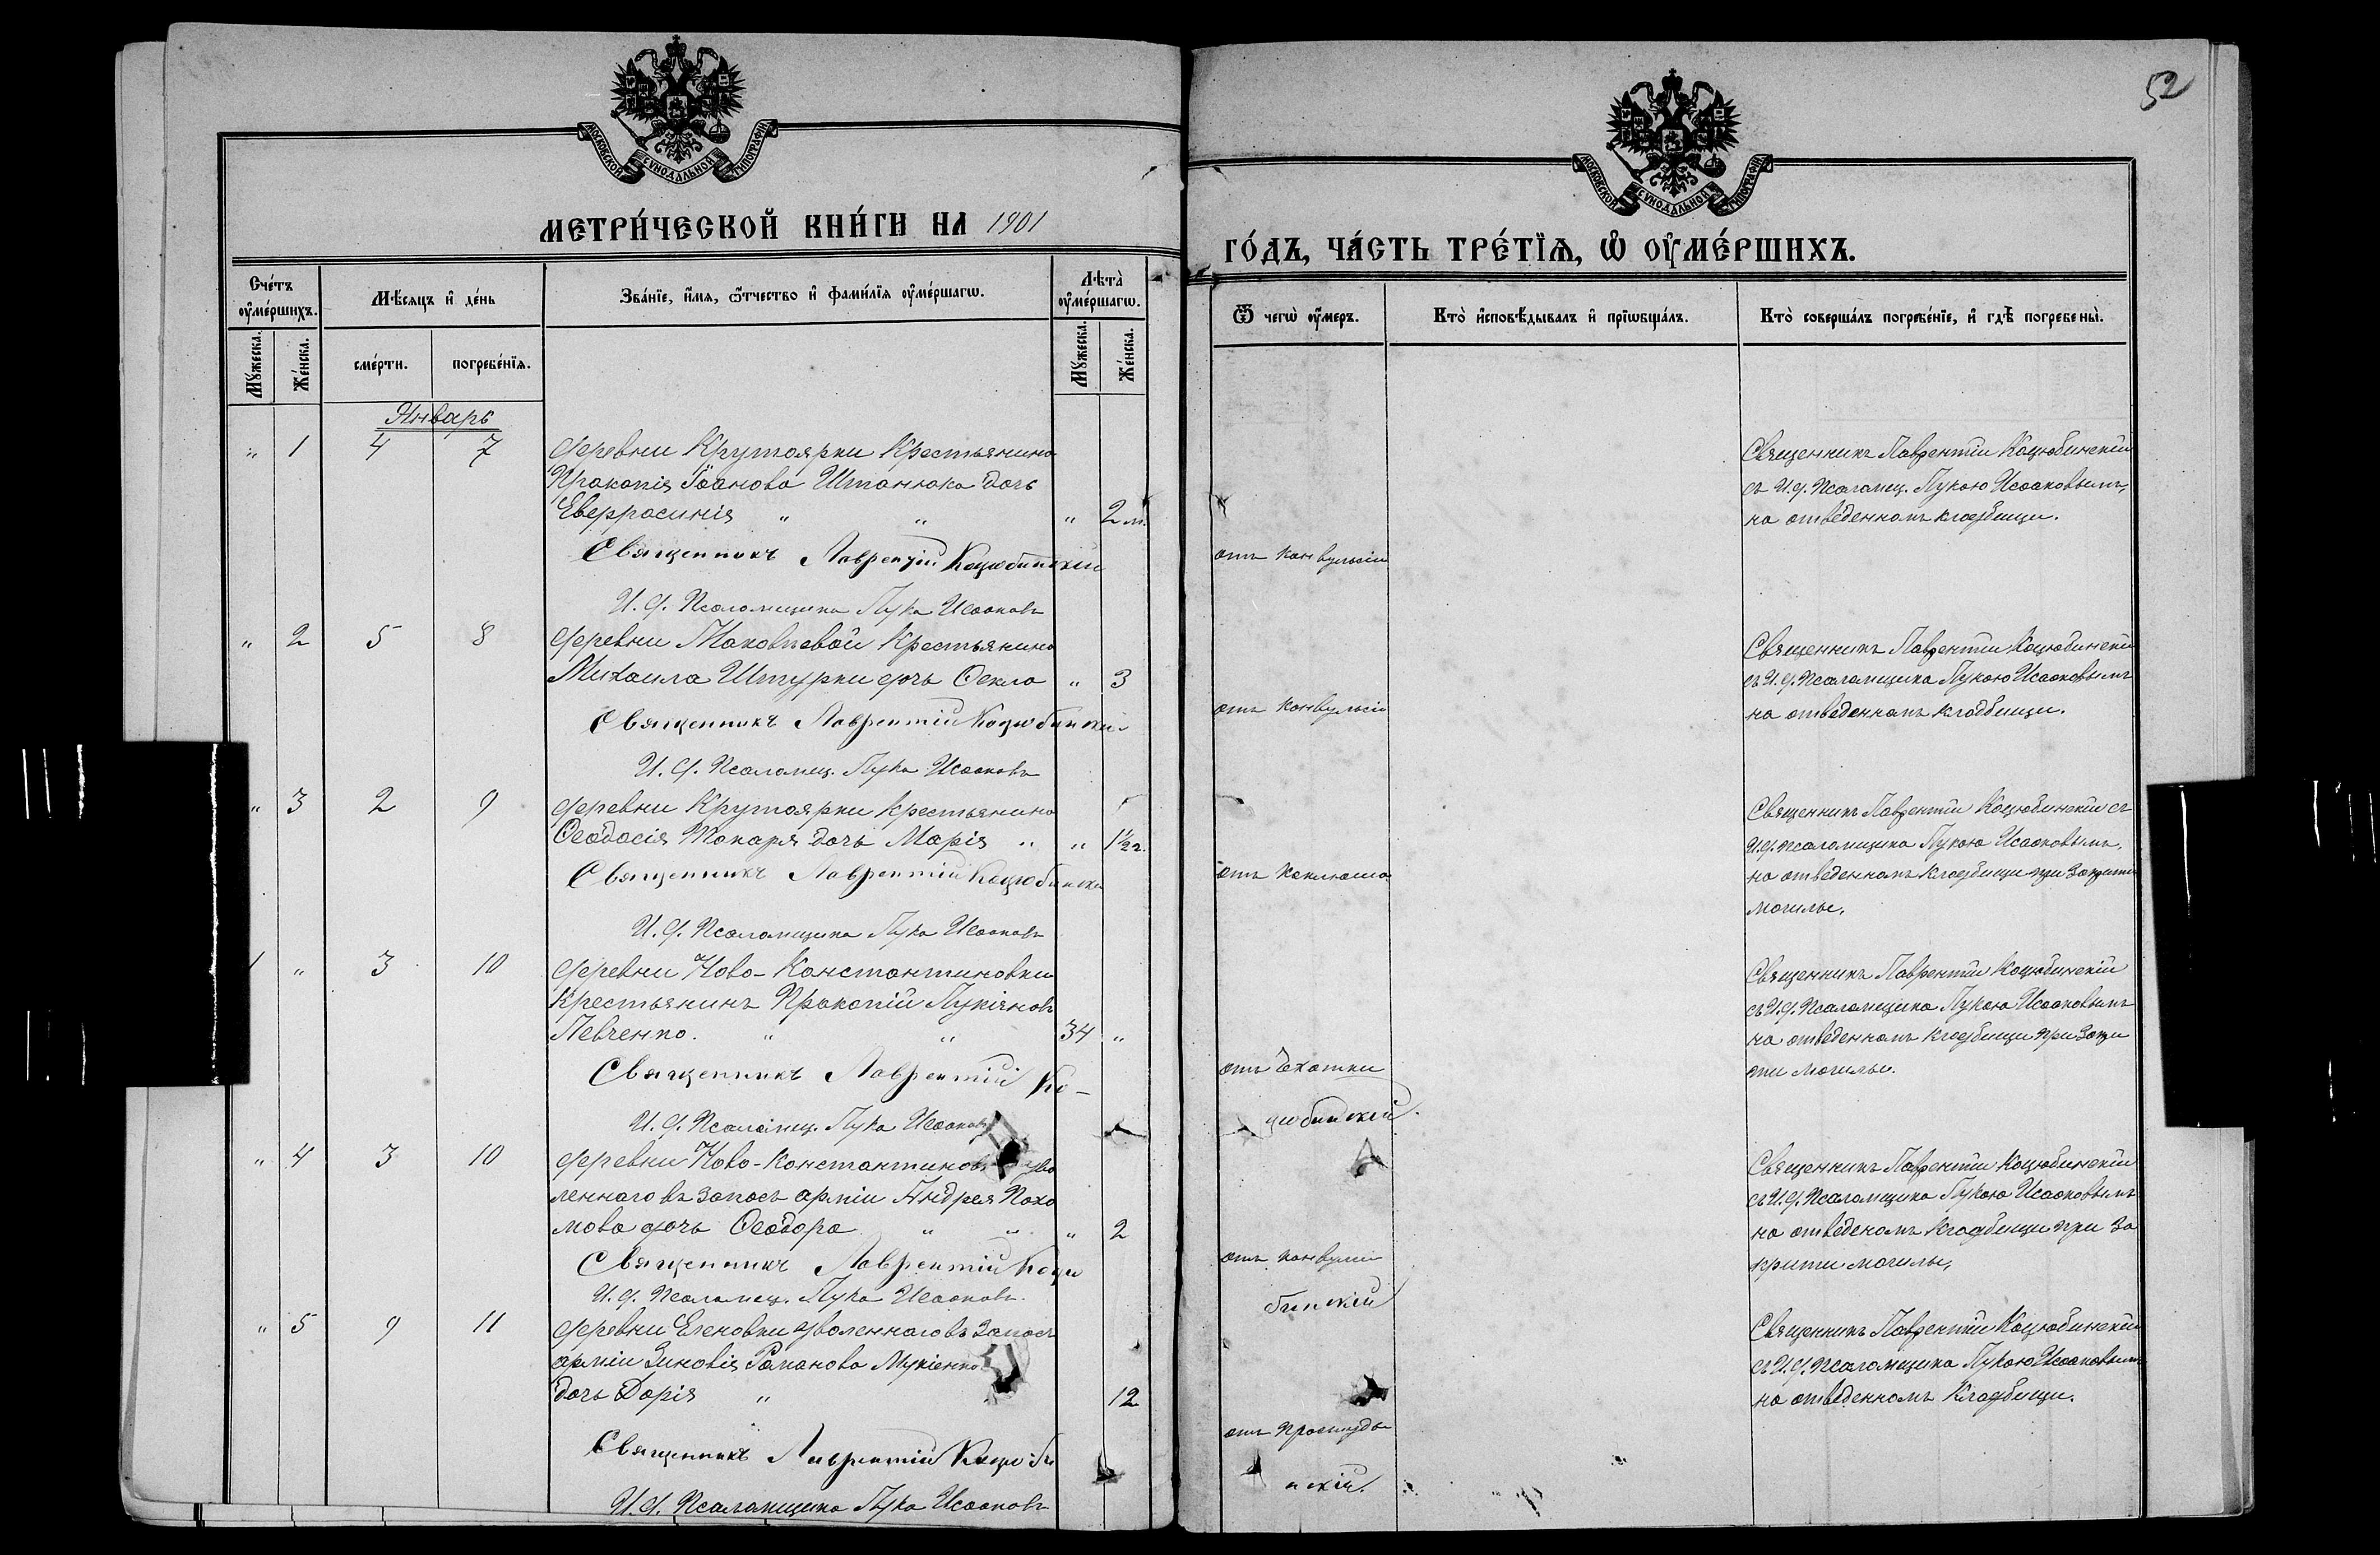 52
МОСКОВСКОЙ СѴНОДАЛЬНОЙ ТИПОГРАФІИ
МОСКОВСКОЙ СѴНОДАЛЬНОЙ ТИПОГРАФІИ
МЕТРИ́ЧЕСКОЙ КНИ́ГИ НА 1901
ГО́ДЪ, ЧА́СТЬ ТРЕ́ТЇѦ, Ѡ҆ ОУ҆МЕ́РШИХЪ.
Сче́тъ оу҆ме́ршихъ.
Мꙋ́жеска.
Же́нска.
Мѣ́сяцъ и҆ де́нь
сме́рти.
погребе́нїѧ.
Зва́нїе, и҆́мѧ, ѻ҆́тчество и҆ фами́лїѧ оу҆ме́ршагѡ.
Лѣта̀ оу҆ме́ршагѡ.
Мꙋ́жеска.
Же́нска.
Ѿ чегѡ̀ оу҆́меръ.
Кто̀ и҆сповѣ́дывалъ и҆ прїѡбща́лъ.
Кто̀ соверша́лъ погребе́нїе, и҆ гдѣ̀ погребены̀.
Январь
" 1 4 7 деревни Крутоярки Крестьянина
Прокопія Іоанова Штанюка дочь
Евфросинія " " " 2 м.
Священникъ Лаврентій Коцюбинскій
И. д. Псаломщика Лука Исааковъ
отъ конвульсіи
Священникъ Лаврентій Коцюбинскій
съ И. д. Псаломщ. Лукою Исааковымъ,
на отведенномъ кладбищи.
" 2 5 8 деревни Яковлевой Крестьянина
Михаила Штурки дочь Оекла " 3
Священникъ Лаврентій Коцюбинскій
И. д. Псаломщ. Лука Исааковъ
отъ конвульсіи
Священникъ Лаврентій Коцюбинскій
съ И. д. Псаломщика Лукою Исааковымъ
на отведенномъ кладбищи.
" 3 2 9 деревни Крутоярки крестьянина
Ѳеодосія Токаря дочь Марія " " 1½ г.
Священникъ Лаврентій Коцюбински
И. д. Псаломщика Лука Исааковъ
отъ Коклюша
Священникъ Лаврентій Коцюбинскій съ
И. д. псаломщика Лукою Исааковымъ,
на отведенномъ кладбищи при закрити
могилы.
1 " 3 10 деревни Ново-Константиновки
Крестьянинъ Прокопій Лукіяновъ
Левченко. " " 34 "
Священникъ Лаврентій Ко-
цюбинскій.
И. д. Псаломщ. Лука Исааковъ
отъ Чахотки
Священникъ Лаврентій Коцюбинскій
съ И. д. Псаломщика Лукою Исааковымъ
на отведенномъ кладбищи при закри
ти могилы.
" 4 3 10 деревни Ново-Константинов уво
леннаго въ запасъ арміи Андрея Пахо
мова дочь Ѳеодора " " " 2
Священникъ Лаврентій Коцю
бинскій
И. д. Псаломщ. Лука Исааковъ.
отъ конвулсіи
Священникъ Лаврентій Коцюбинскій
съ И. д. Псаломщика Лукою Исааковымъ
на отведеномъ кладбищи при за
крити могилы,
" 5 9 11 деревни Еленовки уволеннаго въ запасъ
арміи Зиновія Романова Мукіенко
дочь Дарія " 12
Священникъ Лаврентій Коцюби
нскій.
И. д. Псаламщика Лука Исааковъ
отъ простуды
Священникъ Лаврентій Коцюбинскій
съ И. д. Псаломщика Лукою Исааковымъ
на отведенномъ Кладбищи.